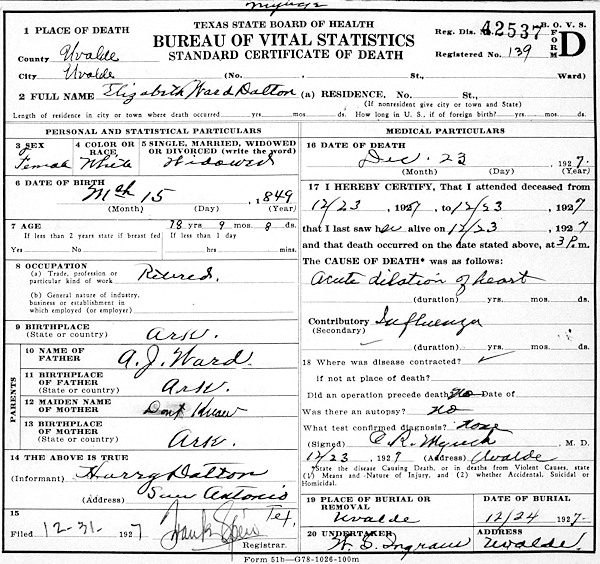 TEXAS STATE BOARD OF HEALTH
BUREAU OF VITAL STATISTICS
STANDARD CERTIFICATE OF DEATH
Reg. Dis. No. 42537 B. O. V. S. FORM D
Registered No. 139
1 PLACE OF DEATH
County Uvalde
City Uvalde (No. , St., Ward)
2 FULL NAME Elizabeth Ward Dalton (a) RESIDENCE, No. St.,
(If nonresident give city or town and State)
Length of residence in city or town where death occurred yrs. mos. ds. How long in U. S., if of foreign birth? yrs. mos. ds.
PERSONAL AND STATISTICAL PARTICULARS
3 SEX Female
4 COLOR OR RACE White
5 SINGLE, MARRIED, WIDOWED OR DIVORCED (write the word) Widowed
6 DATE OF BIRTH Mch 15 , 1849
(Month) (Day) (Year)
7 AGE 78 yrs 9 mos 8 ds.
If less than 2 years state if breast fed If less than 1 day
Yes No hrs. mins.
8 OCCUPATION
(a) Trade, profession or particular kind of work Retired.
(b) General nature of industry, business or establishment in which employed (or employer)
9 BIRTHPLACE (State or country) Ark.
PARENTS
10 NAME OF FATHER A. J. Ward.
11 BIRTHPLACE OF FATHER (State or country) Ark.
12 MAIDEN NAME OF MOTHER Dont Know
13 BIRTHPLACE OF MOTHER (State or country) Ark.
14 THE ABOVE IS TRUE
(Informant) Harry Dalton
(Address) San Antonio Tex,
15
Filed 12-31- 1927 Frank
Registrar.
MEDICAL PARTICULARS
16 DATE OF DEATH Dec. 23 1927.
(Month) (Day) (Year)
17 I HEREBY CERTIFY, That I attended deceased from
12/23 , 1927 , to 12/23 , 1927
that I last saw her alive on 12/23 , 1927
and that death occurred on the date stated above, at 3 P. m.
The CAUSE OF DEATH* was as follows:
Acute dilation of heart
(duration) yrs. mos. ds.
Contributory (Secondary) Influenza
(duration) yrs. mos. ds.
18 Where was disease contracted?
if not at place of death?
Did an operation precede death No Date of
Was there an autopsy? no
What test confirmed diagnosis? none
(Signed) C. R. , M. D.
12/23 , 1927 (Address) Uvalde
*State the disease Causing Death, or in deaths from Violent Causes, state
(1) Means and Nature of Injury, and (2) whether Accidental, Suicidal or
Homicidal.
19 PLACE OF BURIAL OR REMOVAL Uvalde
DATE OF BURIAL 12/24 1927.
20 UNDERTAKER Ingram
ADDRESS Uvalde.
Form 51b—G78-1026-100m